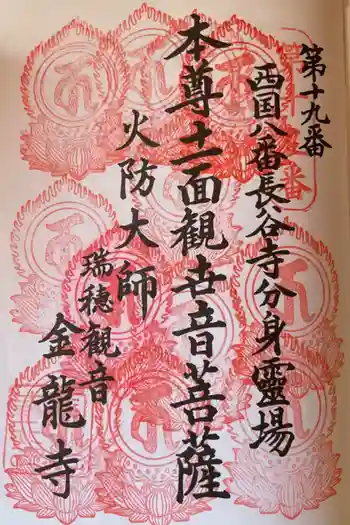 第十九番
西国八番長谷寺分身靈場
本尊十一面観世音菩薩
火防大師
瑞穂観音
金龍寺